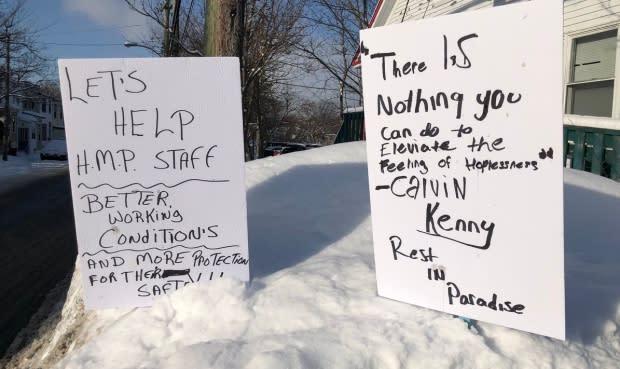 LET'S
HELP
H.M.P. STAFF
BETTER,
WORKING
CONDITION'S
AND MORE PROTECTION
FOR THER
SAFTY!!!
"There IS
Nothing you
can do to
Eleviate the
Feeling of Hoplessness"
-Calvin
Kenny
Rest
IN
Paradise